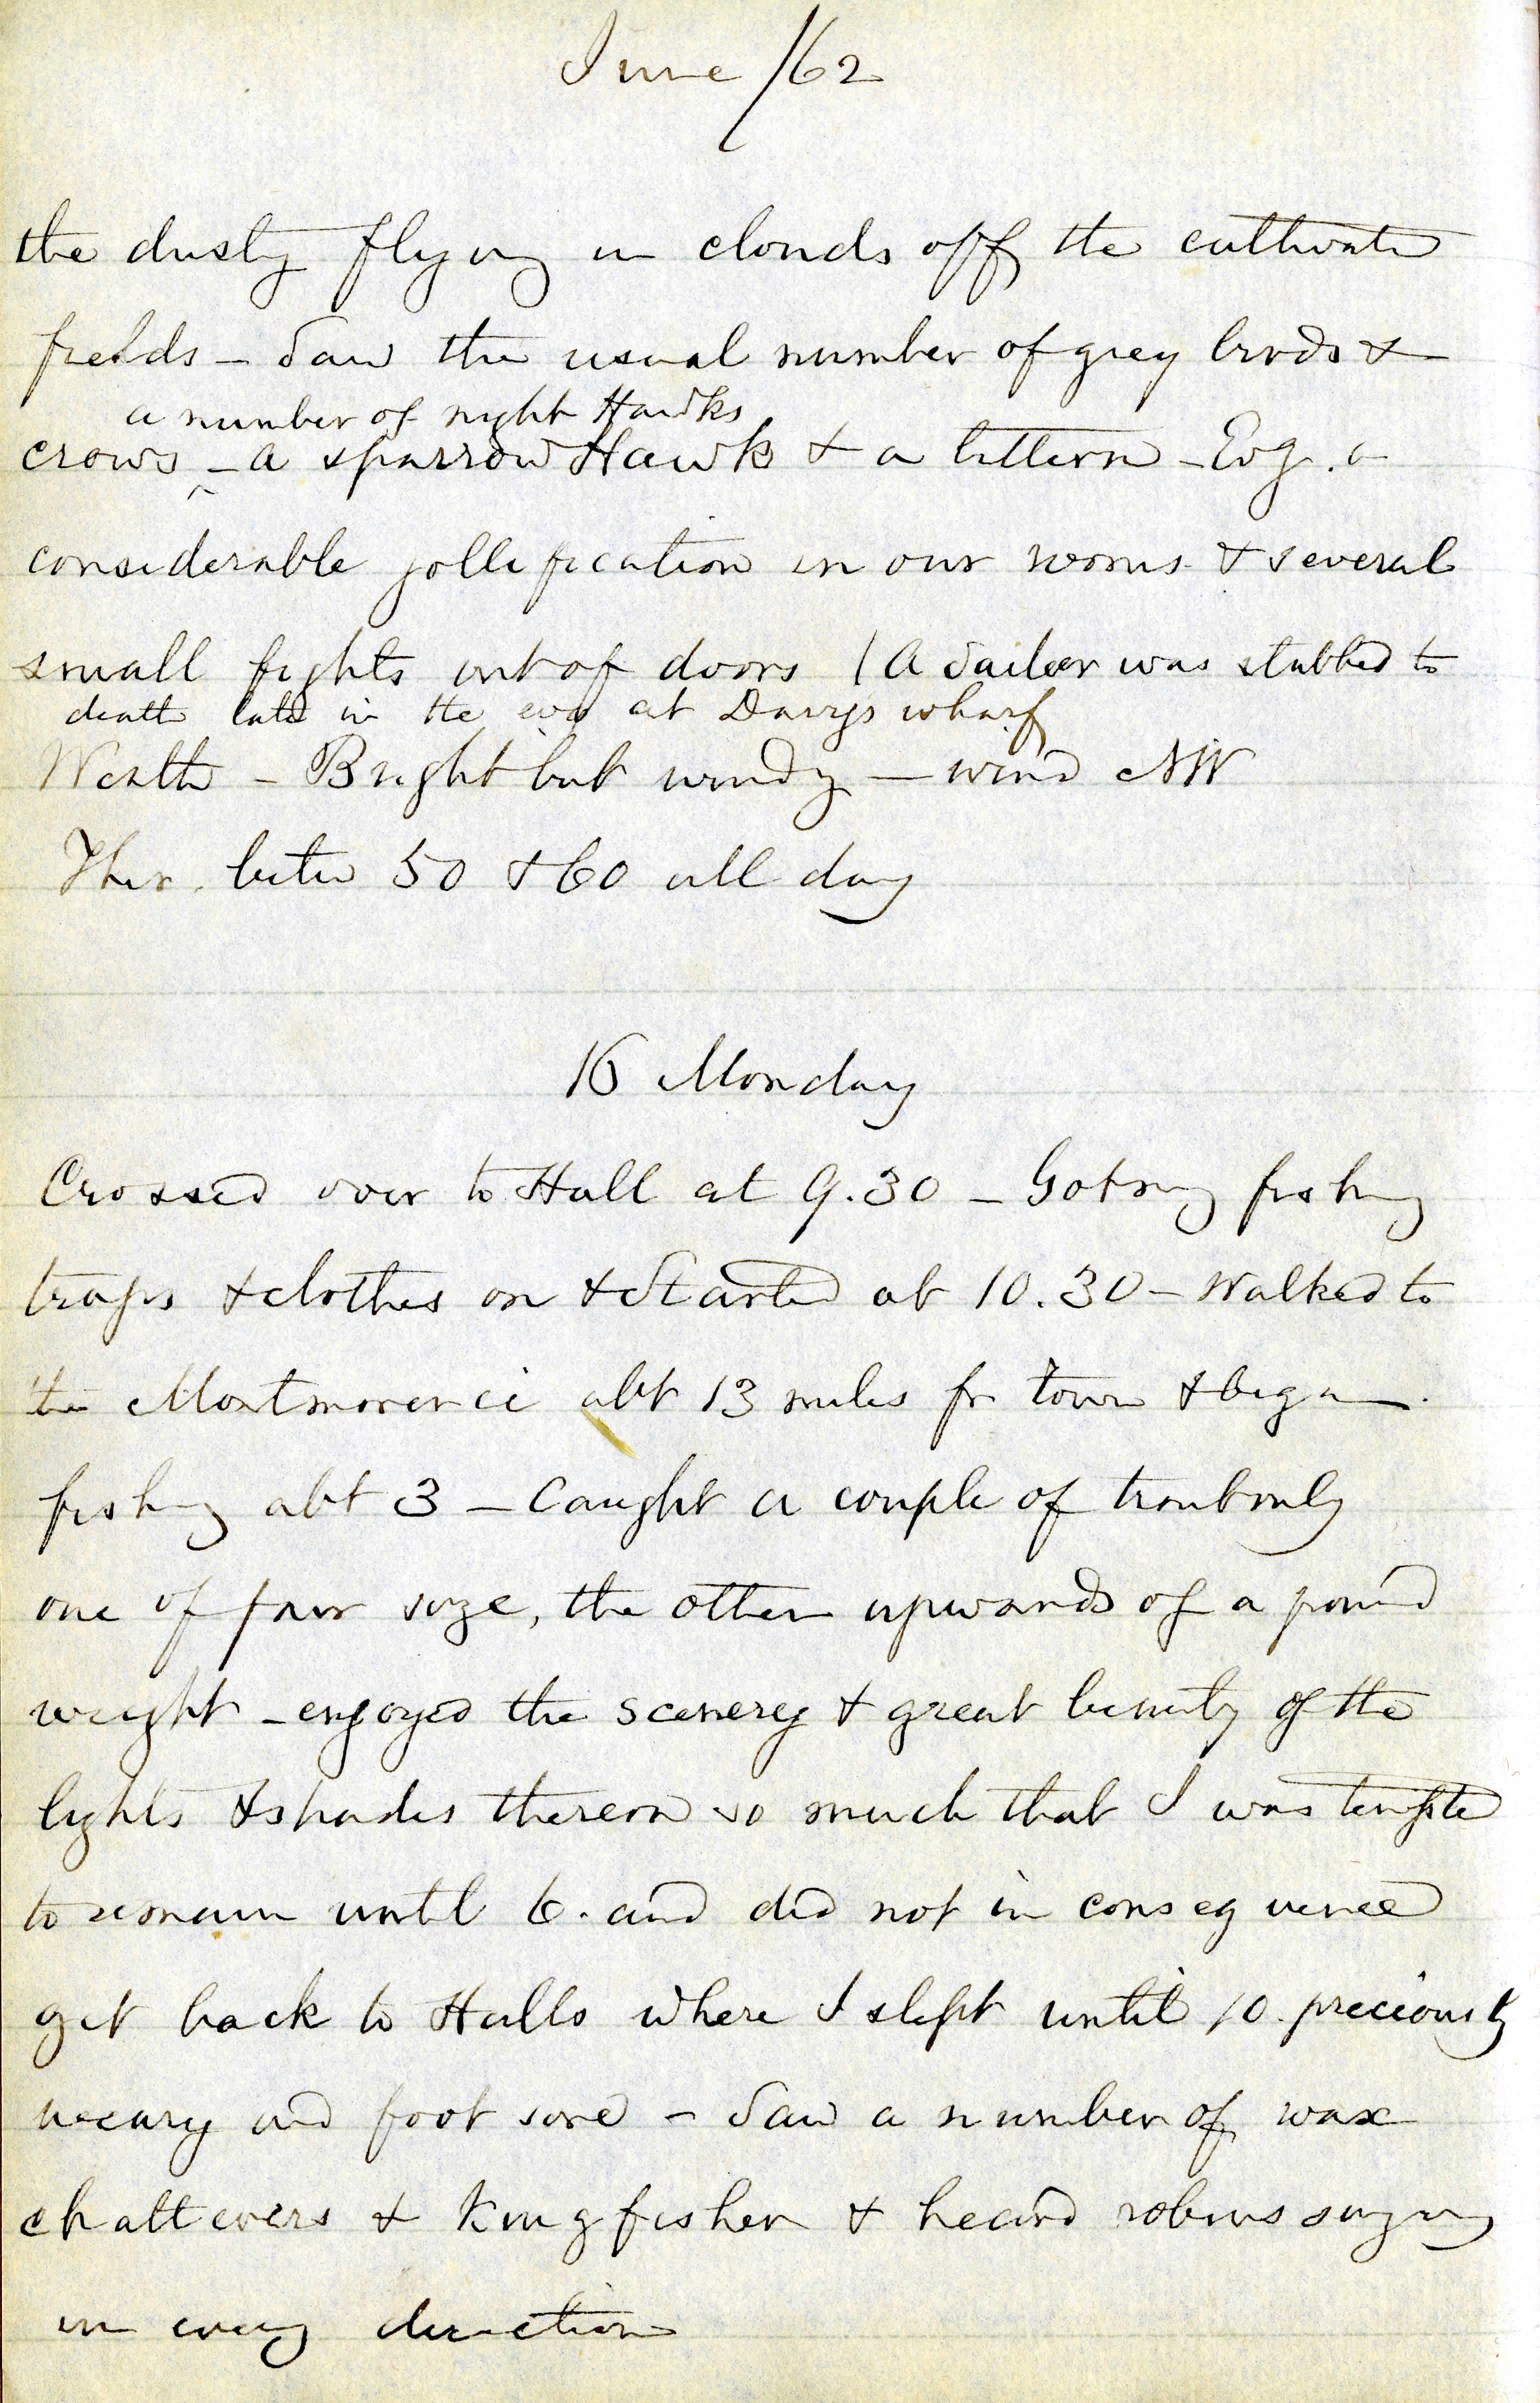 June /62
the dusty flying in clouds off the cultivated
fields - Saw the usual number of grey birds &
a number of night Hawks
crows ^ - a sparrow Hawk & a bittern - Evg. a
considerable jollification in our rooms & several
small fights out of doors (A Sailor was stabbed to
death late in the evg at Darrys wharf
Weather - Bright but windy - wind NW
Ther. betw 50 & 60 all day
16 Monday
Crossed over to Hall at 9.30 - Got my fishing
traps & clothes on & Started at 10.30 - Walked to
the Montmorenci abt 13 miles fr town & began
fishing abt 3 - Caught a couple of trout only
one of fair size, the other upwards of a pound
weight - enjoyed the scenery & great beauty of the
lights & shades thereon so much that I was tempted
to remain until 6. and did not in consequence
get back to Halls where I slept until 10. preciously
weary and foot sore - Saw a number of wax
chatterers & Kingfisher & heard robins singing
in every direction